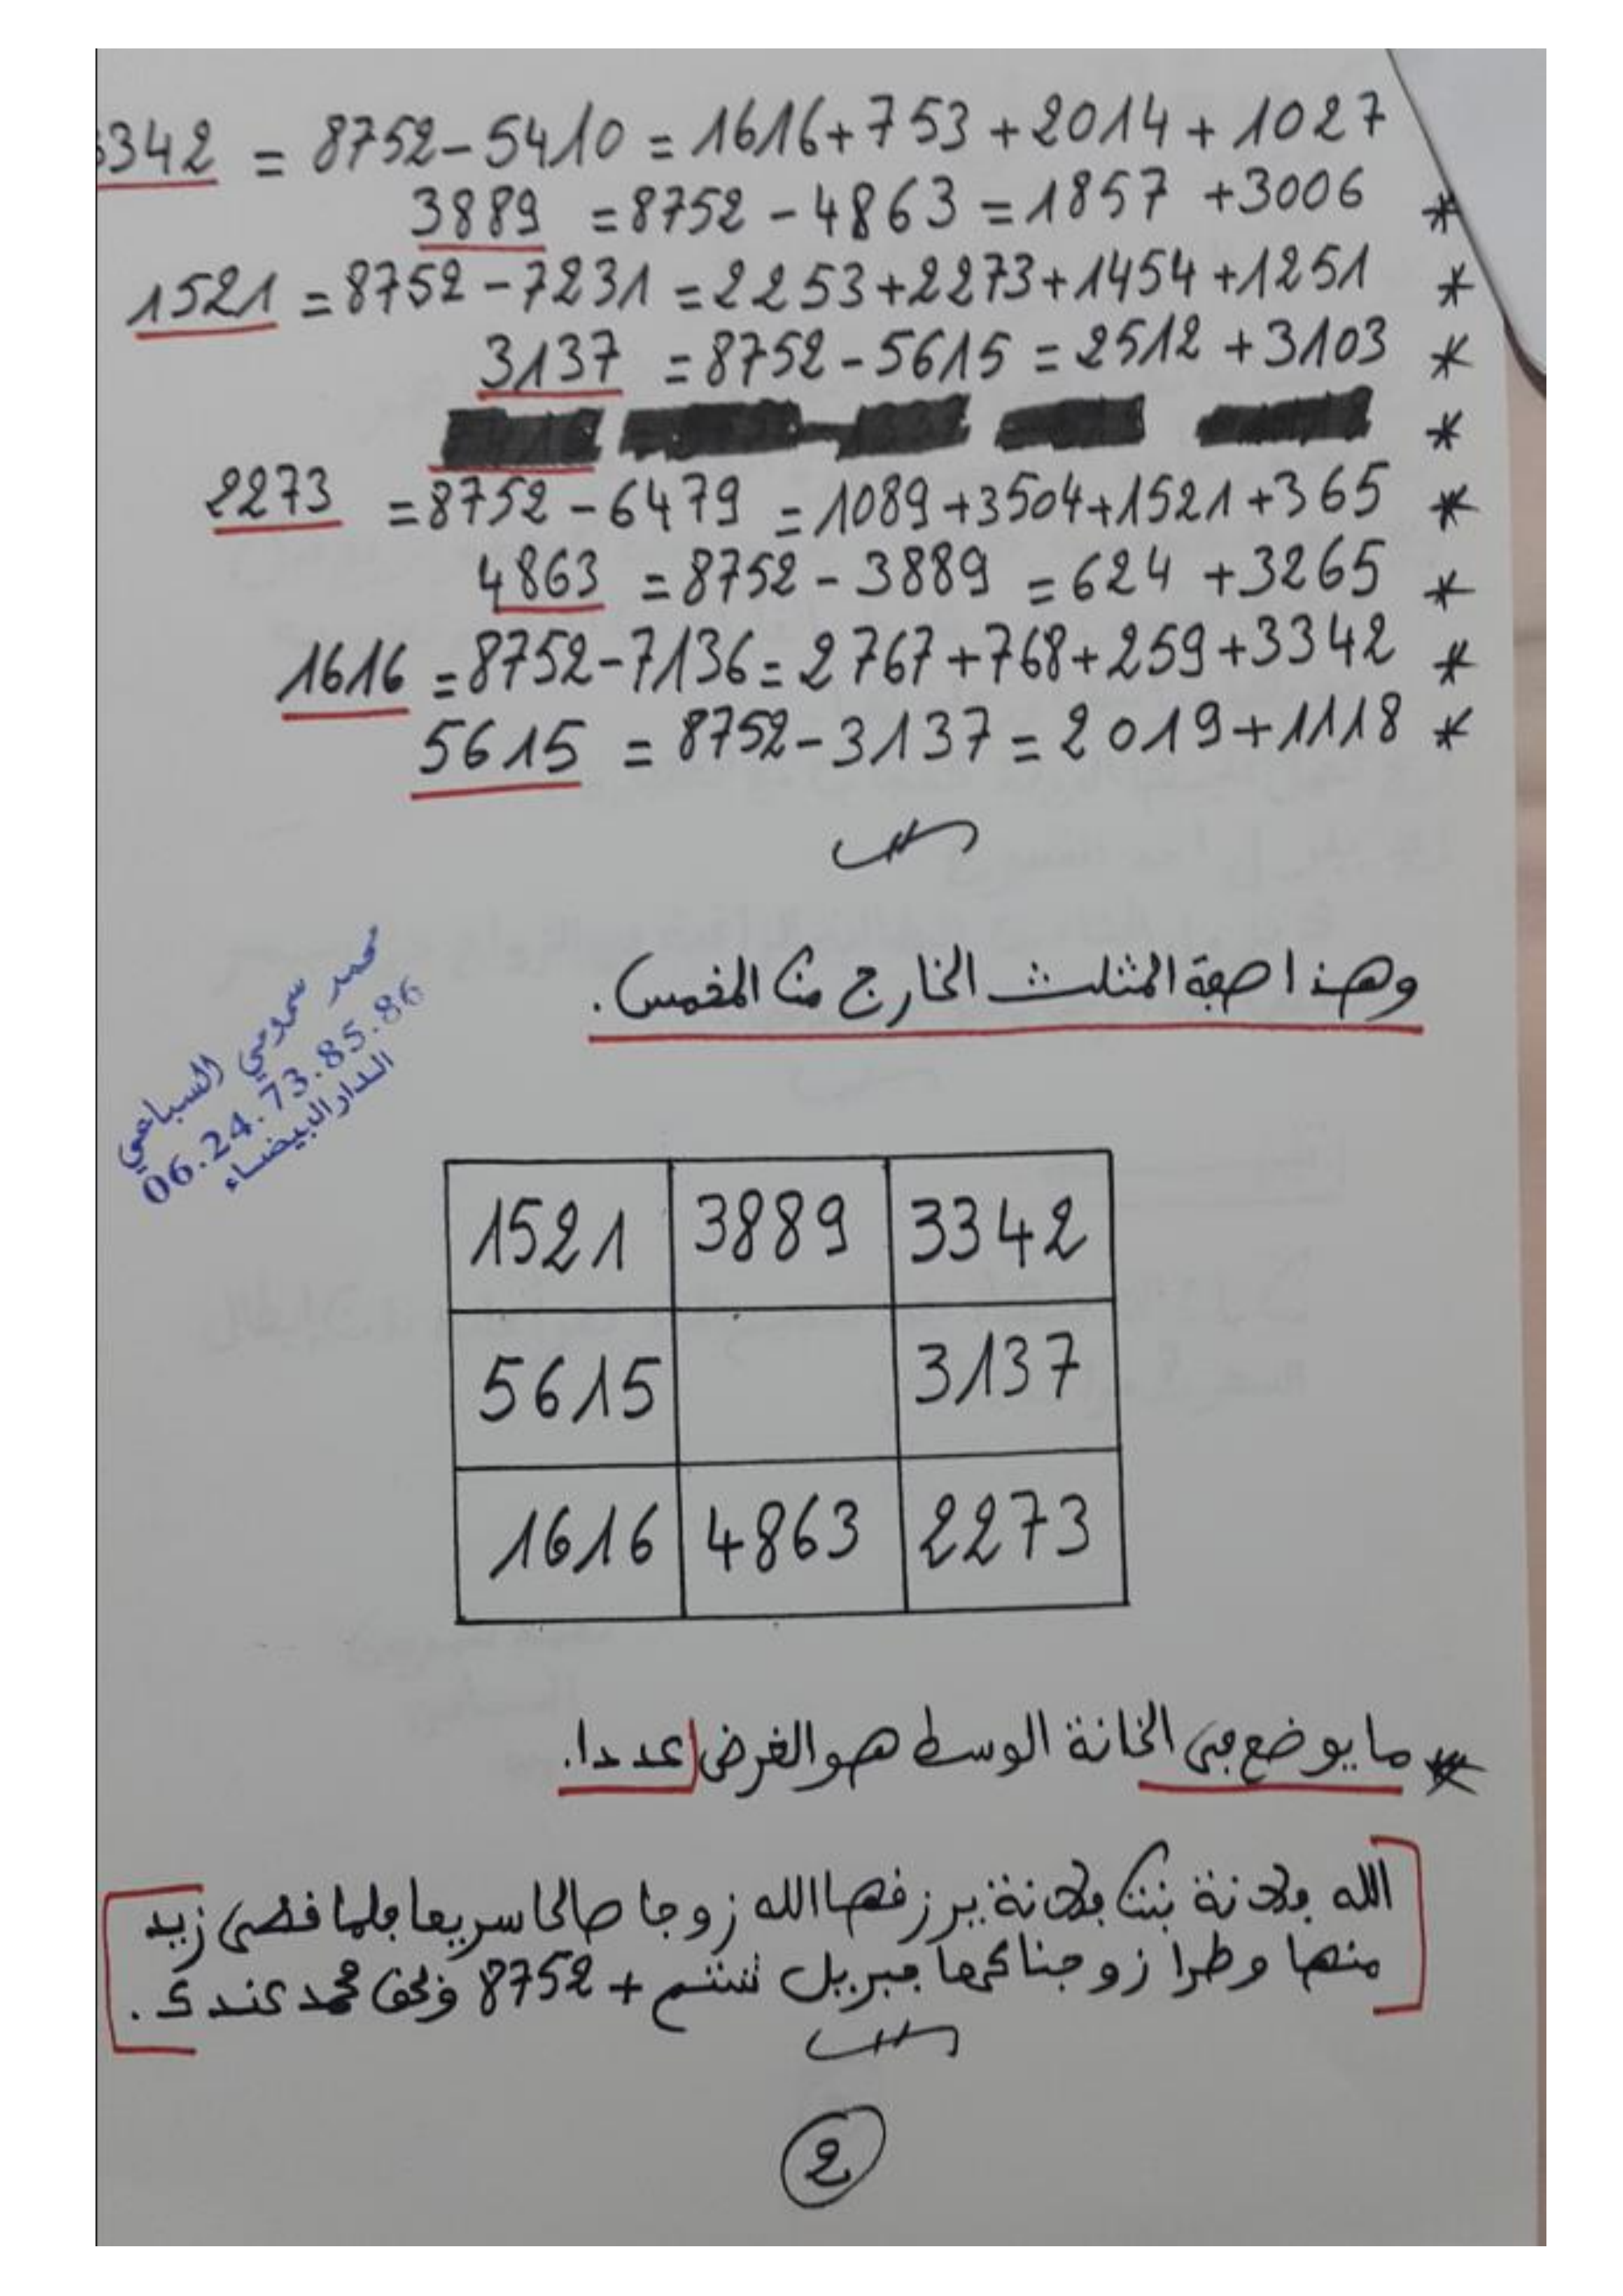 3342 = 8752-5410 = 1616+753+2014+1027
3889 = 8752-4863 = 1857+3006 *
1521 = 8752-7231 = 2253+2273+1454+1251 *
3137 = 8752-5615 = 2512+3103 *
*
2273 = 8752-6479 = 1089+3504+1521+365 *
4863 = 8752-3889 = 624+3265 *
1616 = 8752-7136 = 2767+768+259+3342 *
5615 = 8752-3137 = 2019+1118 *
محمد سمومي السباعي
06.24.73.85.86
الدار البيضاء
وهذا صفة المثلث الخارج من المخمس.
1521 3889 3342
5615 3137
1616 4863 2273
* ما يوضع في الخانة الوسط هو الغرض عددا.
[الله فلانة بنت فلانة يرزقها الله زوجا صالحا سريعا فلما قضى زيد
منها وطرا زوجناكها جبريل + 8752 محمد عندك.]
2